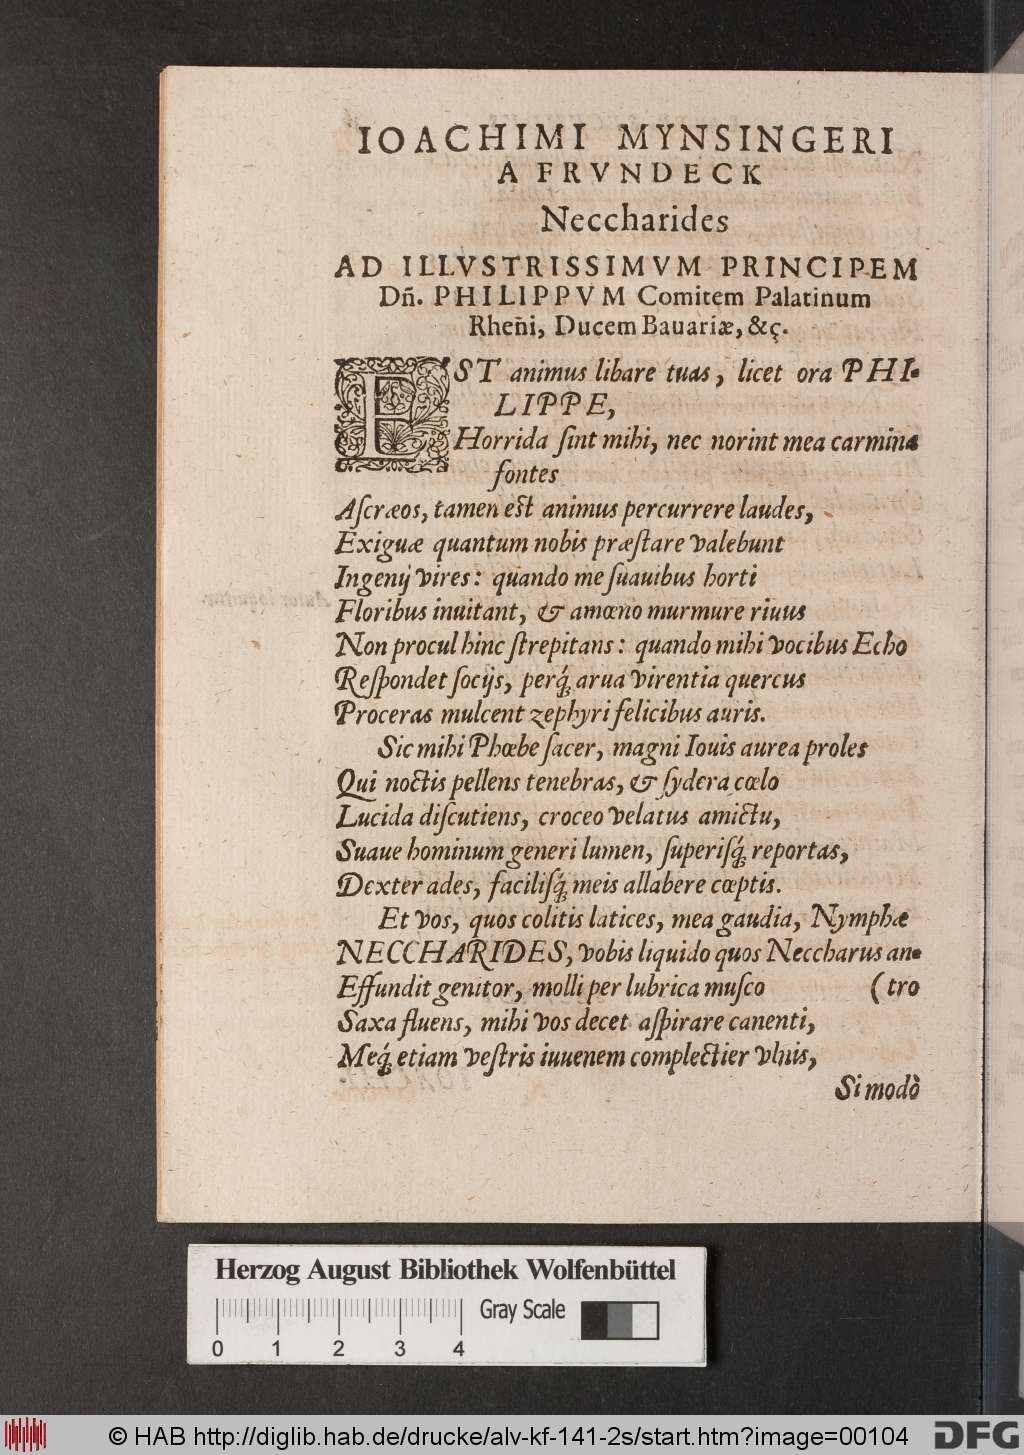 IOACHIMI MYNSINGERI
A FRVNDECK
Neccharides
AD ILLVSTRISSIMVM PRINCIPEM
Dñ. PHILIPPVM Comitem Palatinum
Rheñi, Ducem Bauariæ, &ç.
EST animus libare tuas, licet ora PHI-
LIPPE,
Horrida ſint mihi, nec norint mea carmina
fontes
Aſcræos, tamen est animus percurrere laudes,
Exiguæ quantum nobis præſtare valebunt
Ingenij vires: quando me ſuauibus horti
Floribus inuitant, & amœno murmure riuus
Non procul hinc ſtrepitans: quando mihi vocibus Echo
Reſpondet ſocijs, perq́; arua virentia quercus
Proceras mulcent zephyri felicibus auris.
Sic mihi Phœbe ſacer, magni Iouis aurea proles
Qui noctis pellens tenebras, & ſydera cœlo
Lucida diſcutiens, croceo velatus amictu,
Suaue hominum generi lumen, ſuperiſq́; reportas,
Dexter ades, faciliſq́; meis allabere cœptis.
Et vos, quos colitis latices, mea gaudia, Nymphæ
NECCHARIDES, vobis liquido quos Neccharus an-
Effundit genitor, molli per lubrica muſco (tro
Saxa fluens, mihi vos decet aſpirare canenti,
Meq́; etiam veſtris iuuenem complectier vlnis,
Si modò
Herzog August Bibliothek Wolfenbüttel
Gray Scale
0 1 2 3 4
© HAB http://diglib.hab.de/drucke/alv-kf-141-2s/start.htm?image=00104
DFG